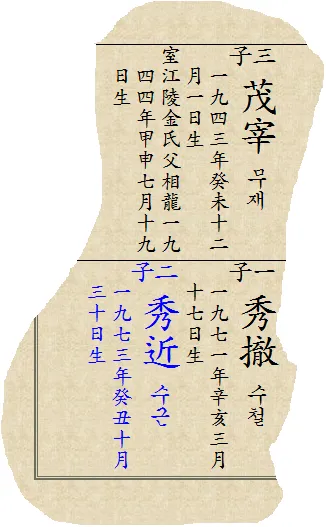 三子
茂宰 무재
一九四三年癸未十二
月一日生
室江陵金氏父相龍一九
四四年甲申七月十九
日生
一子
秀撤 수철
一九七一年辛亥三月
十七日生
二子
秀近 수근
一九七三年癸丑十月
三十日生